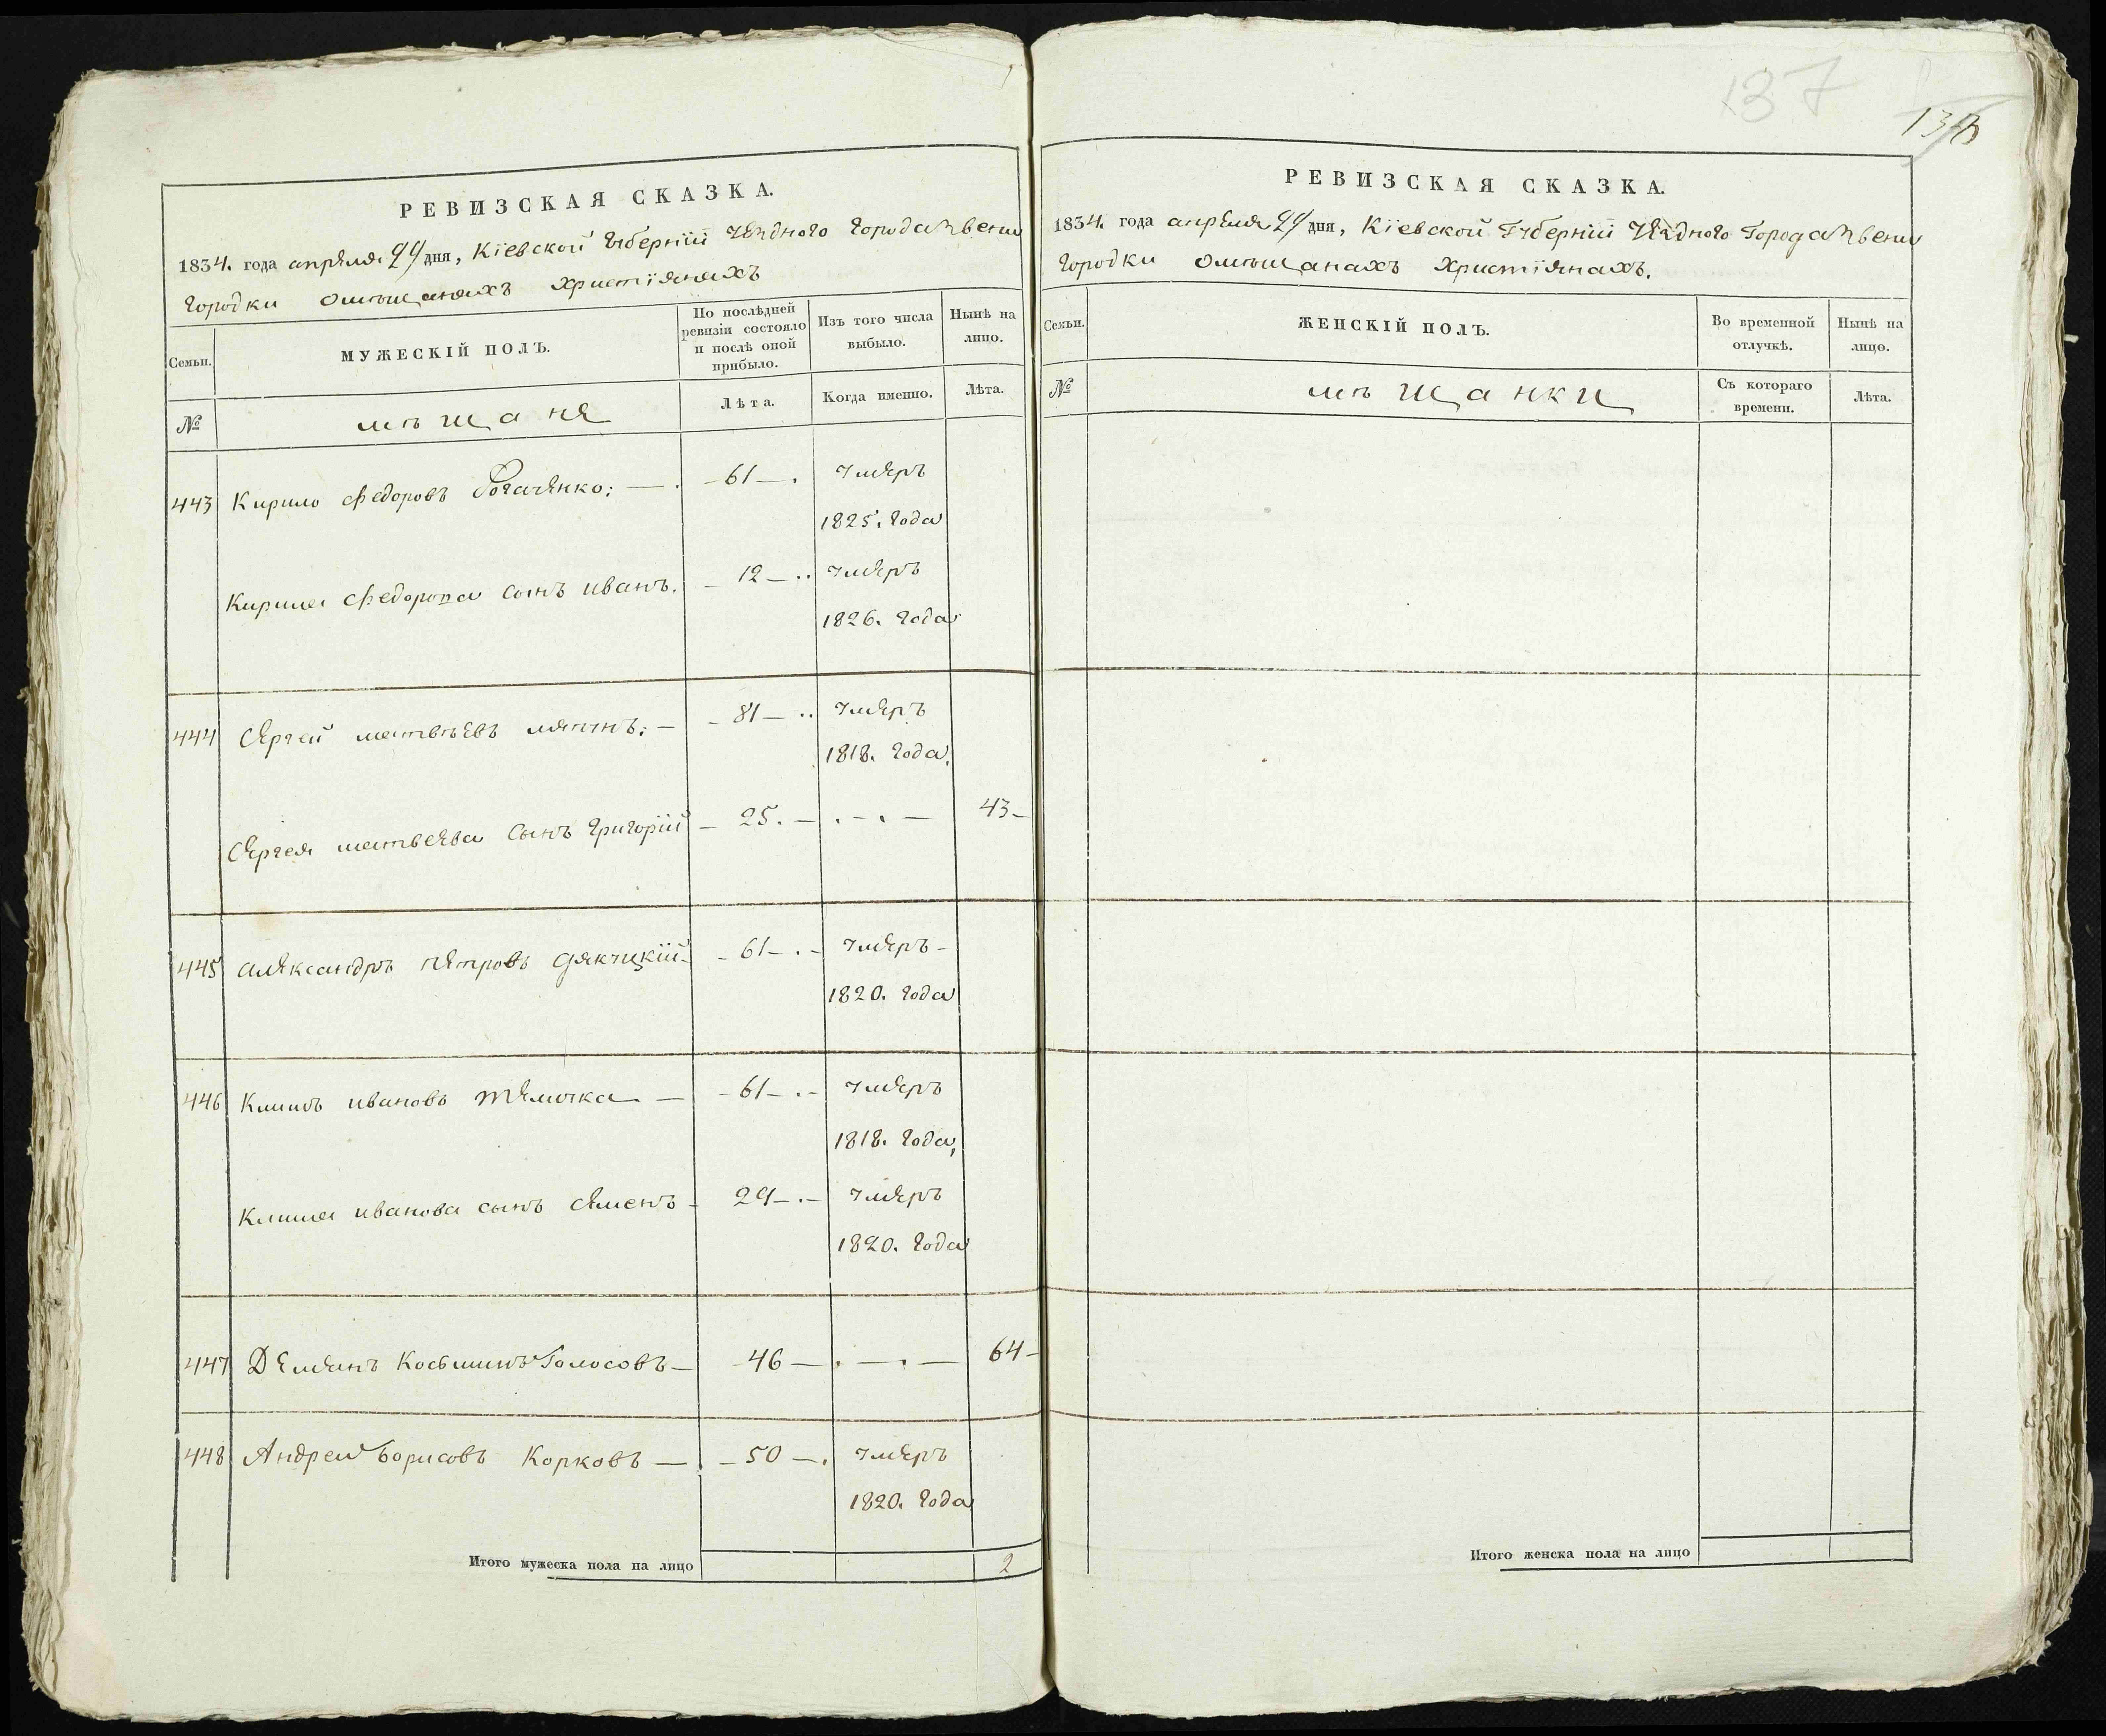 137
РЕВИЗСКАЯ СКАЗКА.
1834. года апреля дня, Кіевской Губерніи Уездного Города Звени
городки о мѣщанахъ христіянахъ
Семьи.
МУЖЕСКІЙ ПОЛЪ.
По послѣдней
ревизіи состояло
и послѣ оной
прибыло.
Изъ того числа
выбыло.
Нынѣ на
лицо.
№
мѣщане
Лѣта.
Когда именно.
Лѣта.
443 Кирило Федоровъ — 61 — умеръ
1825. года
Кирила Федорова сынъ иванъ. — 12 — умеръ
1826. года
444 Сергей матвѣевъ — 81 — умеръ
1818. года
Сергея матвеева сынъ григорій — 25. — . — . — 43 —
445 александръ петровъ — 61 — умеръ —
1820. года
446 Климъ ивановъ — 61 — умеръ
1818. года
Клима иванова сынъ семенъ — 29 — умеръ
1820. года
447 Демянъ Косьминъ Голосовъ — 46 — . — . — 64 —
448 Андрей Борисовъ Корковъ — 50 — умеръ
1820. года
Итого мужеска пола на лицо 2
РЕВИЗСКАЯ СКАЗКА.
1834. года апреля дня, Кіевской Губерніи Уездного Города Звени
городки о мѣщанахъ христіянахъ.
Семьи.
ЖЕНСКІЙ ПОЛЪ.
Во временной
отлучкѣ.
Нынѣ на
лицо.
№
мѣщанки
Съ котораго
времени.
Лѣта.
Итого женска пола на лицо